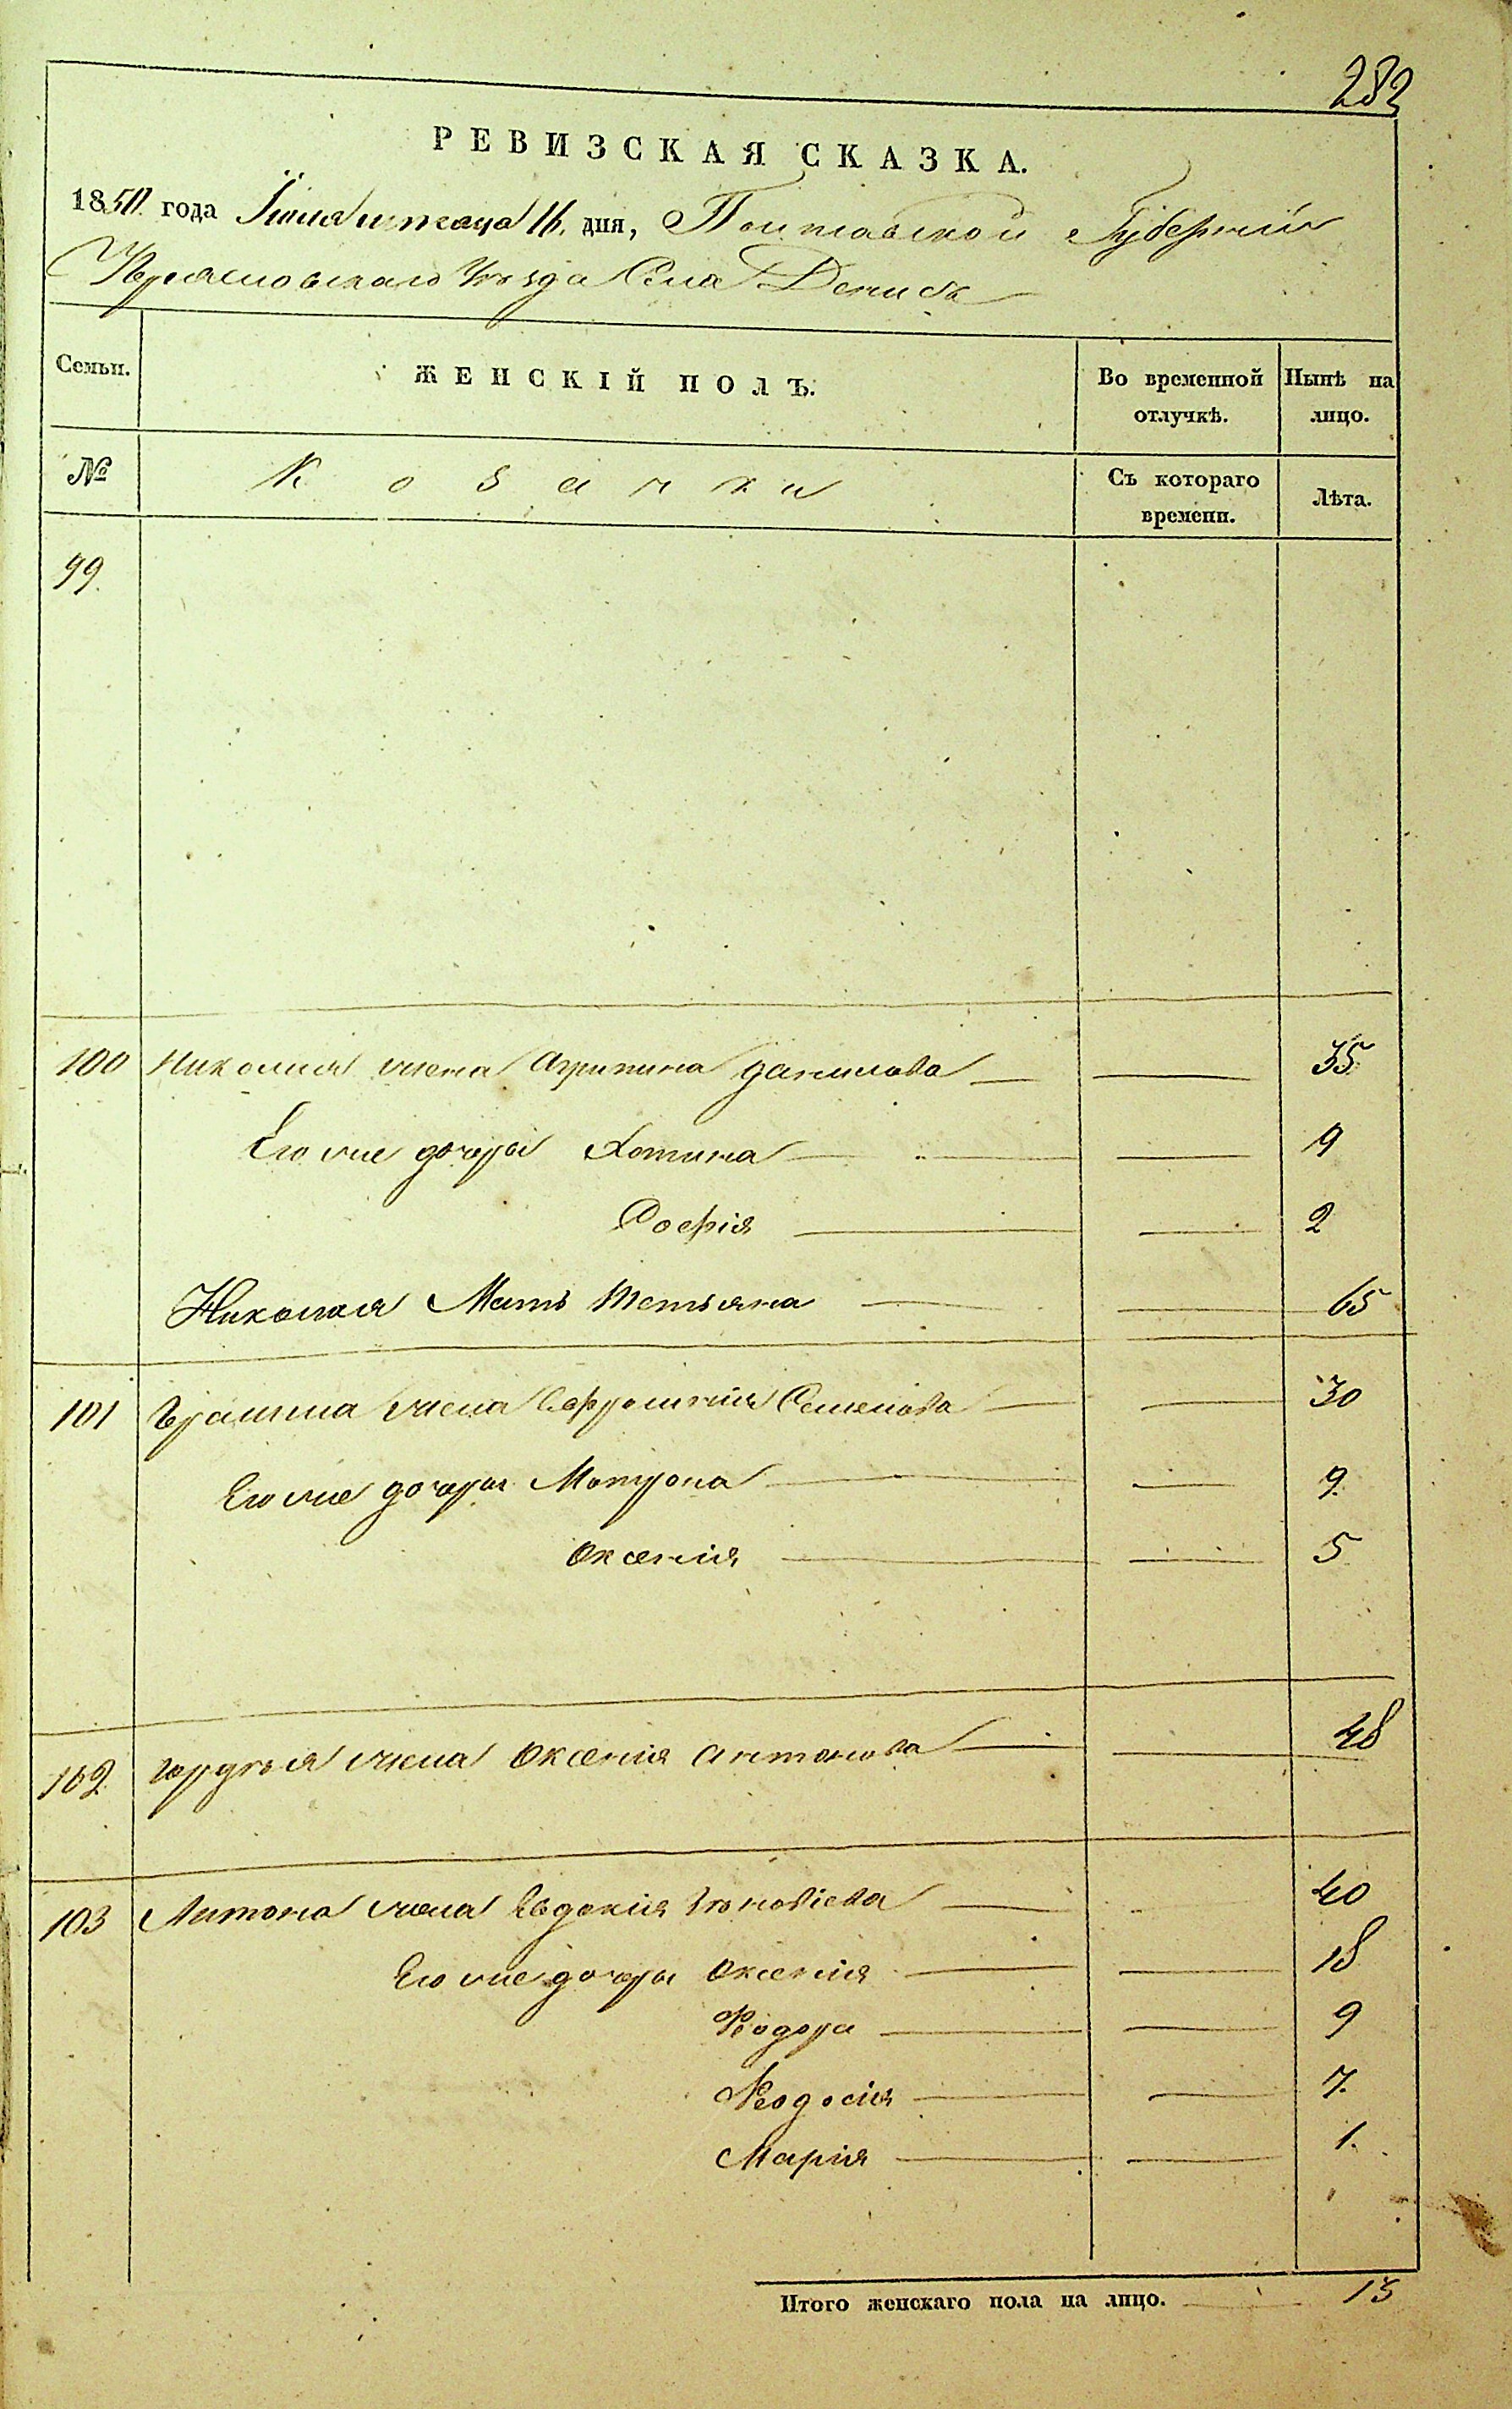 282
РЕВИЗСКАЯ СКАЗКА.
1850 года Іюля мѣсяца 16. дня, Полтавской Губерніи
Переяславскаго Уѣзда Села Денисъ
Семьи. ЖЕНСКІЙ ПОЛЪ. Во временной отлучкѣ. Нынѣ на лицо.
№ Козачки Съ котораго времени. Лѣта.
99.
100 Николая жена Агрипина Данилова 35
Его же дочери Хотина 9
Софія 2
Николая Мать Татьяна 65
101 жена Ефросинія Семенова 30
Его же дочери Мотрона 9.
Оксенія 5
102 жена Оксенія Антонова 48
103 Антона жена Евдокія 40
Его же дочери Оксенія 18
Феодора 9
Феодосія 7.
Марія 1.
Итого женскаго пола на лицо. 13